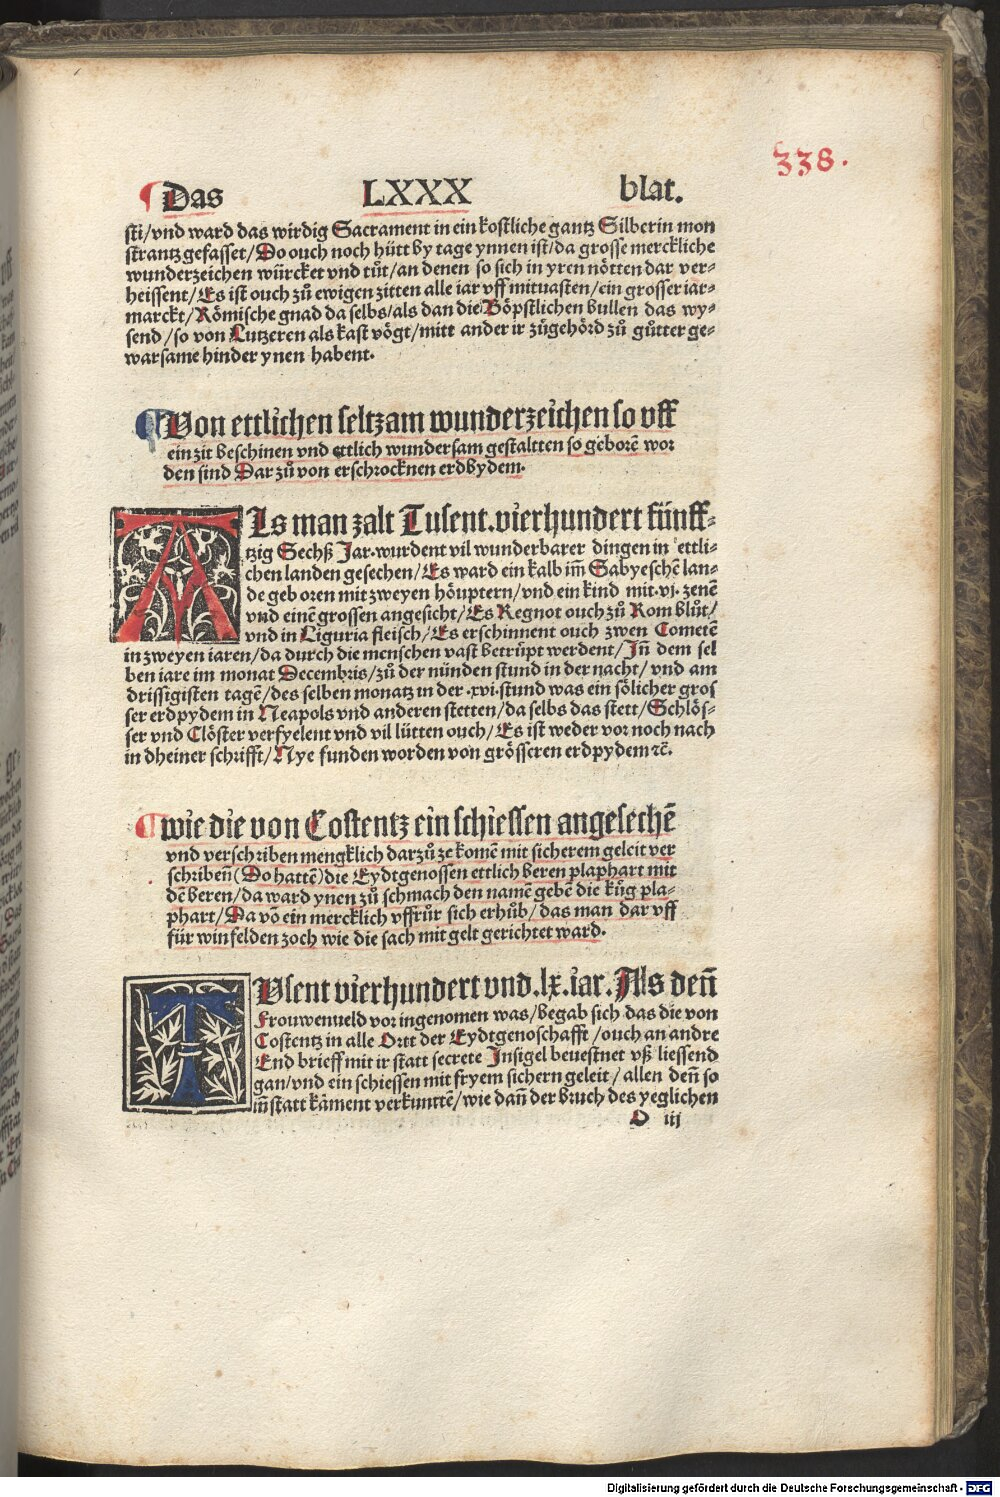 338.
¶ Das LXXX blat.
sti/vnd ward das wirdig Sacrament in ein kostliche gantz Silberin mon
strantz gefasset/Do ouch noch hütt by tage ynnen ist/da grosse merckliche
wunderzeichen würcket vnd tůt/an denen so sich in yren nötten dar ver⸗
heissent/Es ist ouch zů ewigen zitten alle iar vff mitvasten/ein grosser iar⸗
marckt/Römische gnad da selbs/als dan die Böpstlichen bullen das wy⸗
send/so von Lutzeren als kast vögt/mitt ander ir zůgehörd zů gůtter ge⸗
warsame hinder ynen habent.
¶ Von ettlichen seltzam wunderzeichen so vff
ein zit beschinen vnd ettlich wundersam gestaltten so geborē wor
den sind Dar zů von erschrocknen erdbydem.
Als man zalt Tusent.vierhundert fünff⸗
tzig Sechß Jar.wurdent vil wunderbarer dingen in ettli⸗
chen landen gesechen/Es ward ein kalb im̄ Sabyeschē lan⸗
de geboren mit zweyen höuptern/vnd ein kind mit.vj.zenē
vnd einē grossen angesicht/Es Regnot ouch zů Rom blůt/
vnd in Liguria fleisch/Es erschinnent ouch zwen Cometē
in zweyen iaren/da durch die menschen vast betrůpt werdent/Jn̄ dem sel
ben iare im monat Decembris/zů der nünden stund in der nacht/vnd am
drissigisten tagē/des selben monatz in der.xvi.stund was ein sölicher gros
ser erdpydem in Neapols vnd anderen stetten/da selbs das stett/Schlös⸗
ser vnd Clöster verfyelent vnd vil lütten ouch/Es ist weder vor noch nach
in dheiner schrifft/Nye funden worden von grösseren erdpydem ꝛc̄.
¶ wie die von Costentz ein schiessen angesechē
vnd verschriben mengklich darzů ze komē mit sicherem geleit ver
schribēn(Do hattē)die Eydtgenossen ettlich beren plaphart mit
dē beren/da ward ynen zů schmach den namē gebē die kůg pla⸗
phart/Da vō ein mercklich vffrůr sich erhůb/das man dar vff
für winfelden zoch wie die sach mit gelt gerichtet ward.
TVsent vierhundert vnd.lx.iar.Als den̄
Frouwenueld vor ingenomen was/begab sich das die von
Costentz in alle Ortt der Eydtgenoschafft/ouch an andre
End brieff mit ir statt secrete Jnsigel beuestnet vß liessend
gan/vnd ein schiessen mit fryem sichern geleit/allen den̄ so
im̄ statt käment verkunttē/wie dan̄ der bruch des yeglichen
O iij
Digitalisierung gefördert durch die Deutsche Forschungsgemeinschaft - DFG